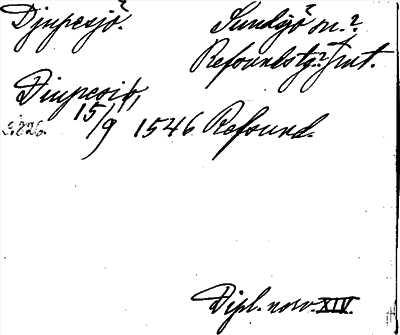 Djupesjö? Sundsjö sn.?
Refsundstg.? Jmt.
Diupesiö,
s. 826. 15/9 1546 Refsund.
Dipl. norv. XIV.